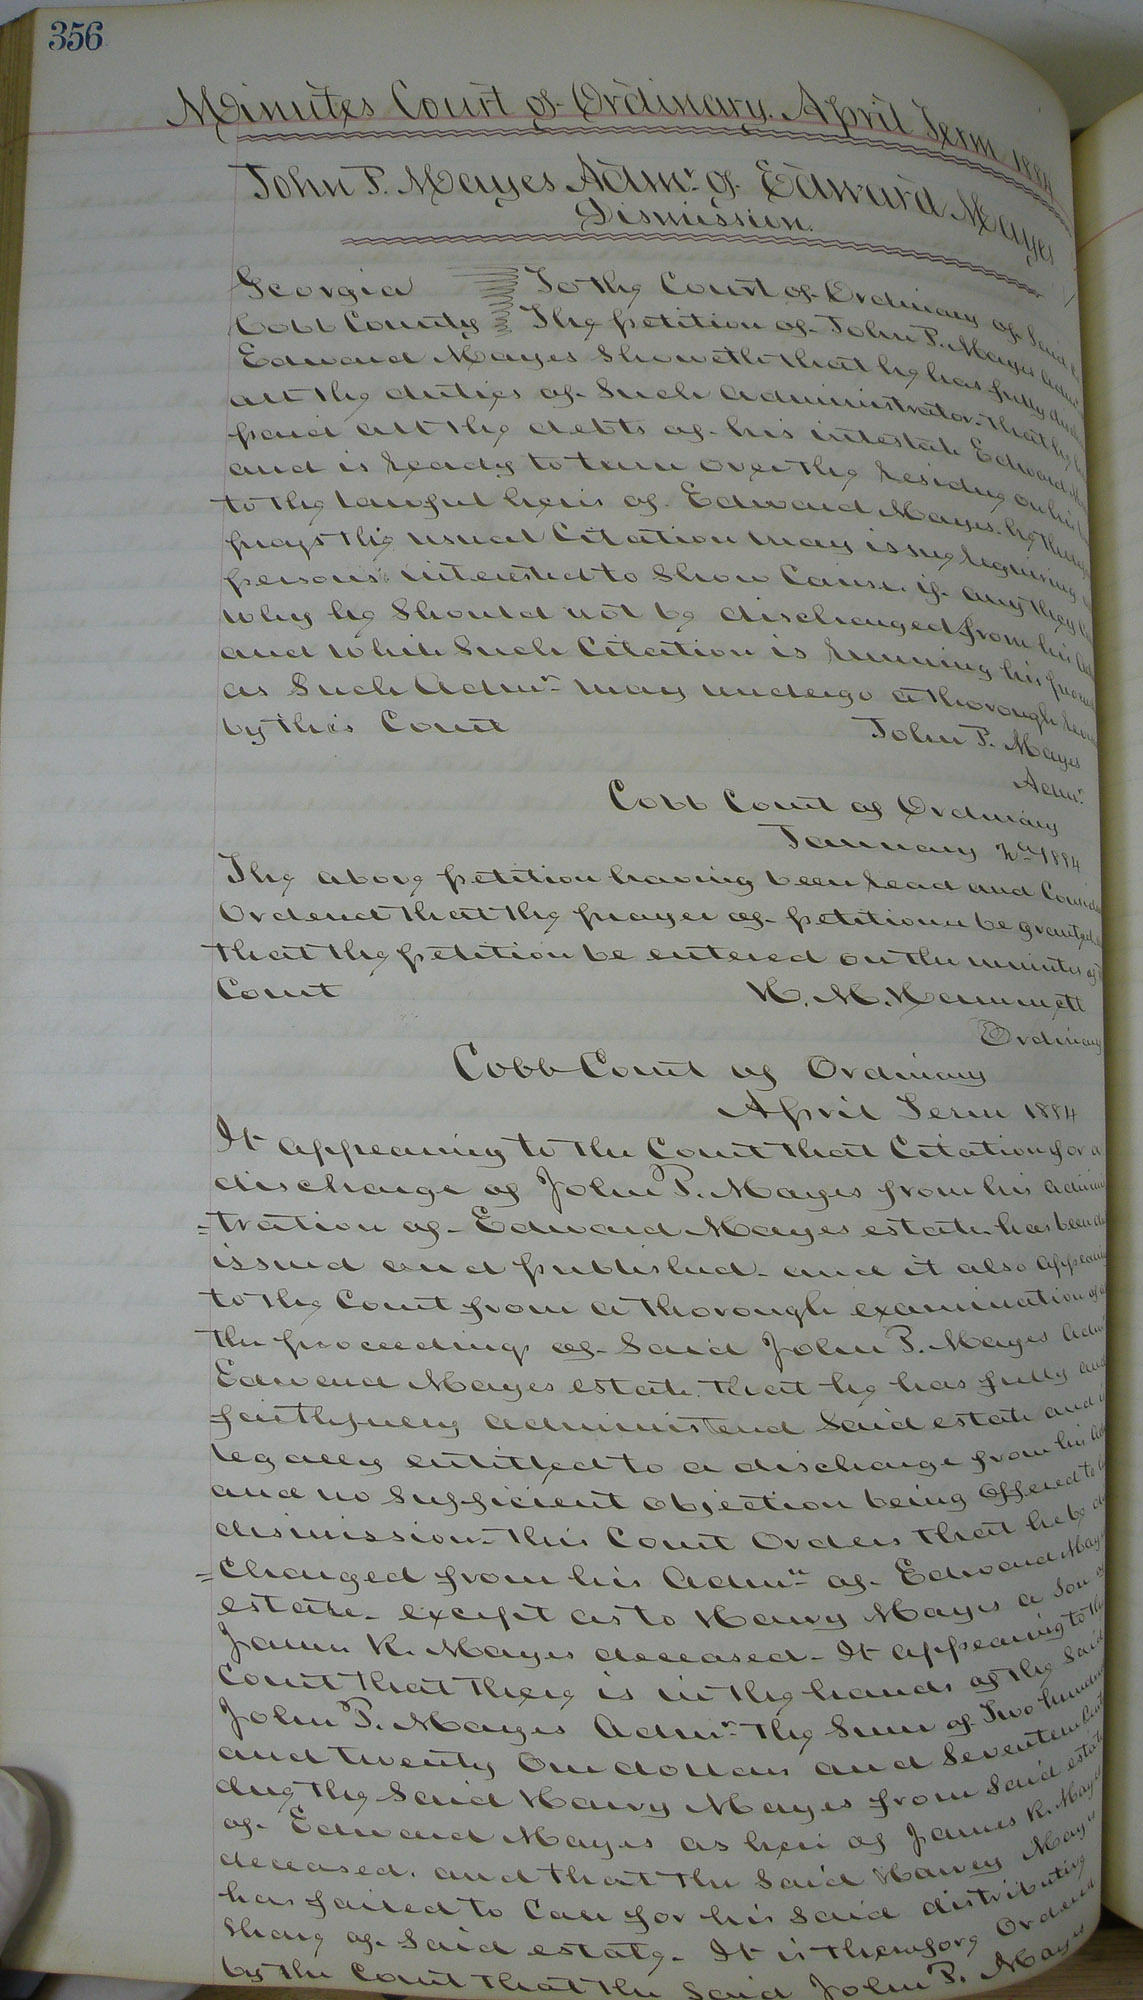 356
Minutes Court of Ordinary. April Term 1884
John P. Mayes Admr. of Edward Mayes
Dismission.
Georgia To the Court of Ordinary of Said
Cobb County The petition of John P. Mayes Admr
Edward Mayes Showeth that he has fully
all the duties of Such Administrator. that he
paid all the debts of his intestate Edward
and is ready to turn over the residue
to the lawful heirs of Edward Mayes. he
prays the usual Citation may issue requiring
persons interested to Show Cause. if any they
why he Should not be discharged from his
and while Such Citation is running his
as Such Admr may undergo a thorough
by this Court John P. Mayes
Admr.
Cobb Court of Ordinary
January 1884
The above petition having been read and
Ordered that the prayer of petitioner be granted
that the petition be entered on the minutes of
Court H. M. Hammett
Ordinary
Cobb Court of Ordinary
April Term 1884
It appearing to the Court that Citation for a
discharge of John P. Mayes from his Admin
=tration of Edward Mayes estate. has been
issued and published. and it also appearing
to the Court from a thorough examination of
the proceedings of Said John P. Mayes Admr
Edward Mayes estate. that he has fully and
faithfully administered Said estate and
legally entitled to a discharge from his
and no Sufficient objection being offered to
dismission. this Court Orders that he be
=charged from his Admn of Edward
estate. except as to Harvy Mayes a Son
James R. Mayes deceased. It appearing to the
Court that there is in the hands of the Said
John P. Mayes Admr. the Sum of Two
and twenty One dollars and Seventeen
due the Said Harvy Mayes from Said estate
of Edward Mayes as heir of James R. Mayes
deceased. and that the Said Harvey Mayes
has failed to Call for his Said distributive
Share of Said estate. It is therefore Ordered
by the Court that the Said John P. Mayes